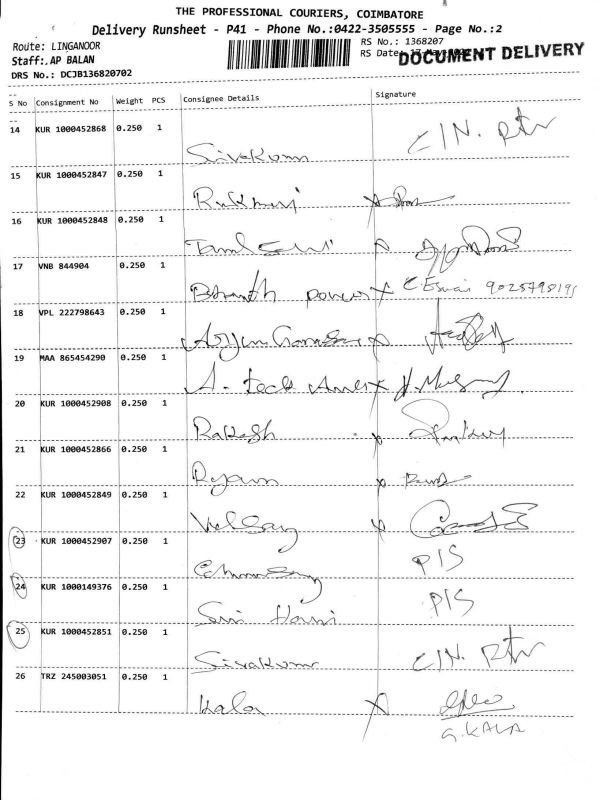 THE PROFESSIONAL COURIERS, COIMBATORE
Delivery Runsheet - P41 - Phone No.:0422-3505555 - Page No.:2
Route: LINGANOOR
RS No.: 1368207
Staff: AP BALAN
RS Date:
DOCUMENT DELIVERY
DRS No.: DCJB136820702
S No Consignment No Weight PCS Consignee Details Signature
14 KUR 1000452868 0.250 1 Sivakumr C/N. Rtn
15 KUR 1000452847 0.250 1 Rukmani x
16 KUR 1000452848 0.250 1 Tamil Selvi x
17 VNB 844904 0.250 1 Bharath power x C. Eswari
18 VPL 222798643 0.250 1 x
19 MAA 865454290 0.250 1 A. teck x
20 KUR 1000452908 0.250 1 Rakesh x
21 KUR 1000452866 0.250 1 x
22 KUR 1000452849 0.250 1 x
23 KUR 1000452907 0.250 1 P/S
24 KUR 1000149376 0.250 1 P/S
25 KUR 1000452851 0.250 1 Sivakumr C/N. Rtn
26 TRZ 245003051 0.250 1 Kala x
G. KALA